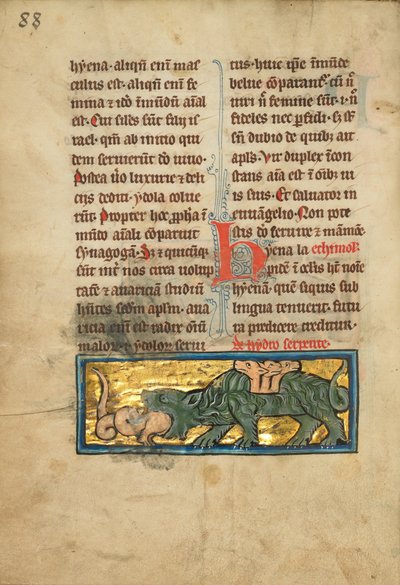 88
hyena. aliqn̄ enī mas
culus est. aliqn̄ enī fe
mina ⁊ idō īmūdū aīal
est. Cui siles sūt filij is
rael. qm̄ ab inicio qui
dem seruierunt dō uiuo.
Postea ūo luxurie ⁊ deli
ciis dediti. ydola colue
rūt. Propter hoc ꝓpha ī
mūdo aīali cōparauit
synagogā. Sꝫ ⁊ quicūqꝫ
sūt int̄ nos circa uolup
tatē ⁊ auariciā studiū
hn̄tes scd̄m aplm̄. aua
ricia enī est radix om̄iū
maloꝝ ⁊ ydoloꝝ serui
tus. huic ip̄e īmūde
belue cōparant̄. cū n̄
uiri n̄ femine sūt. i. n̄
fideles nec ꝑfidi. sꝫ st̄
sn̄ dubio de quibꝫ ait
apl̄s. Vir duplex īcon
stans aīa est ī oīibꝫ ui
is suis. Et saluator in
euuangelio. Non pote
stis dō seruire ⁊ māmōe.
hyena la ethimol̄.
pidē ī oclis ht̄ noīe
hyenā. quē siquis sub
lingua tenuerit. futu
ra predicere creditur.
de hydro serpente.